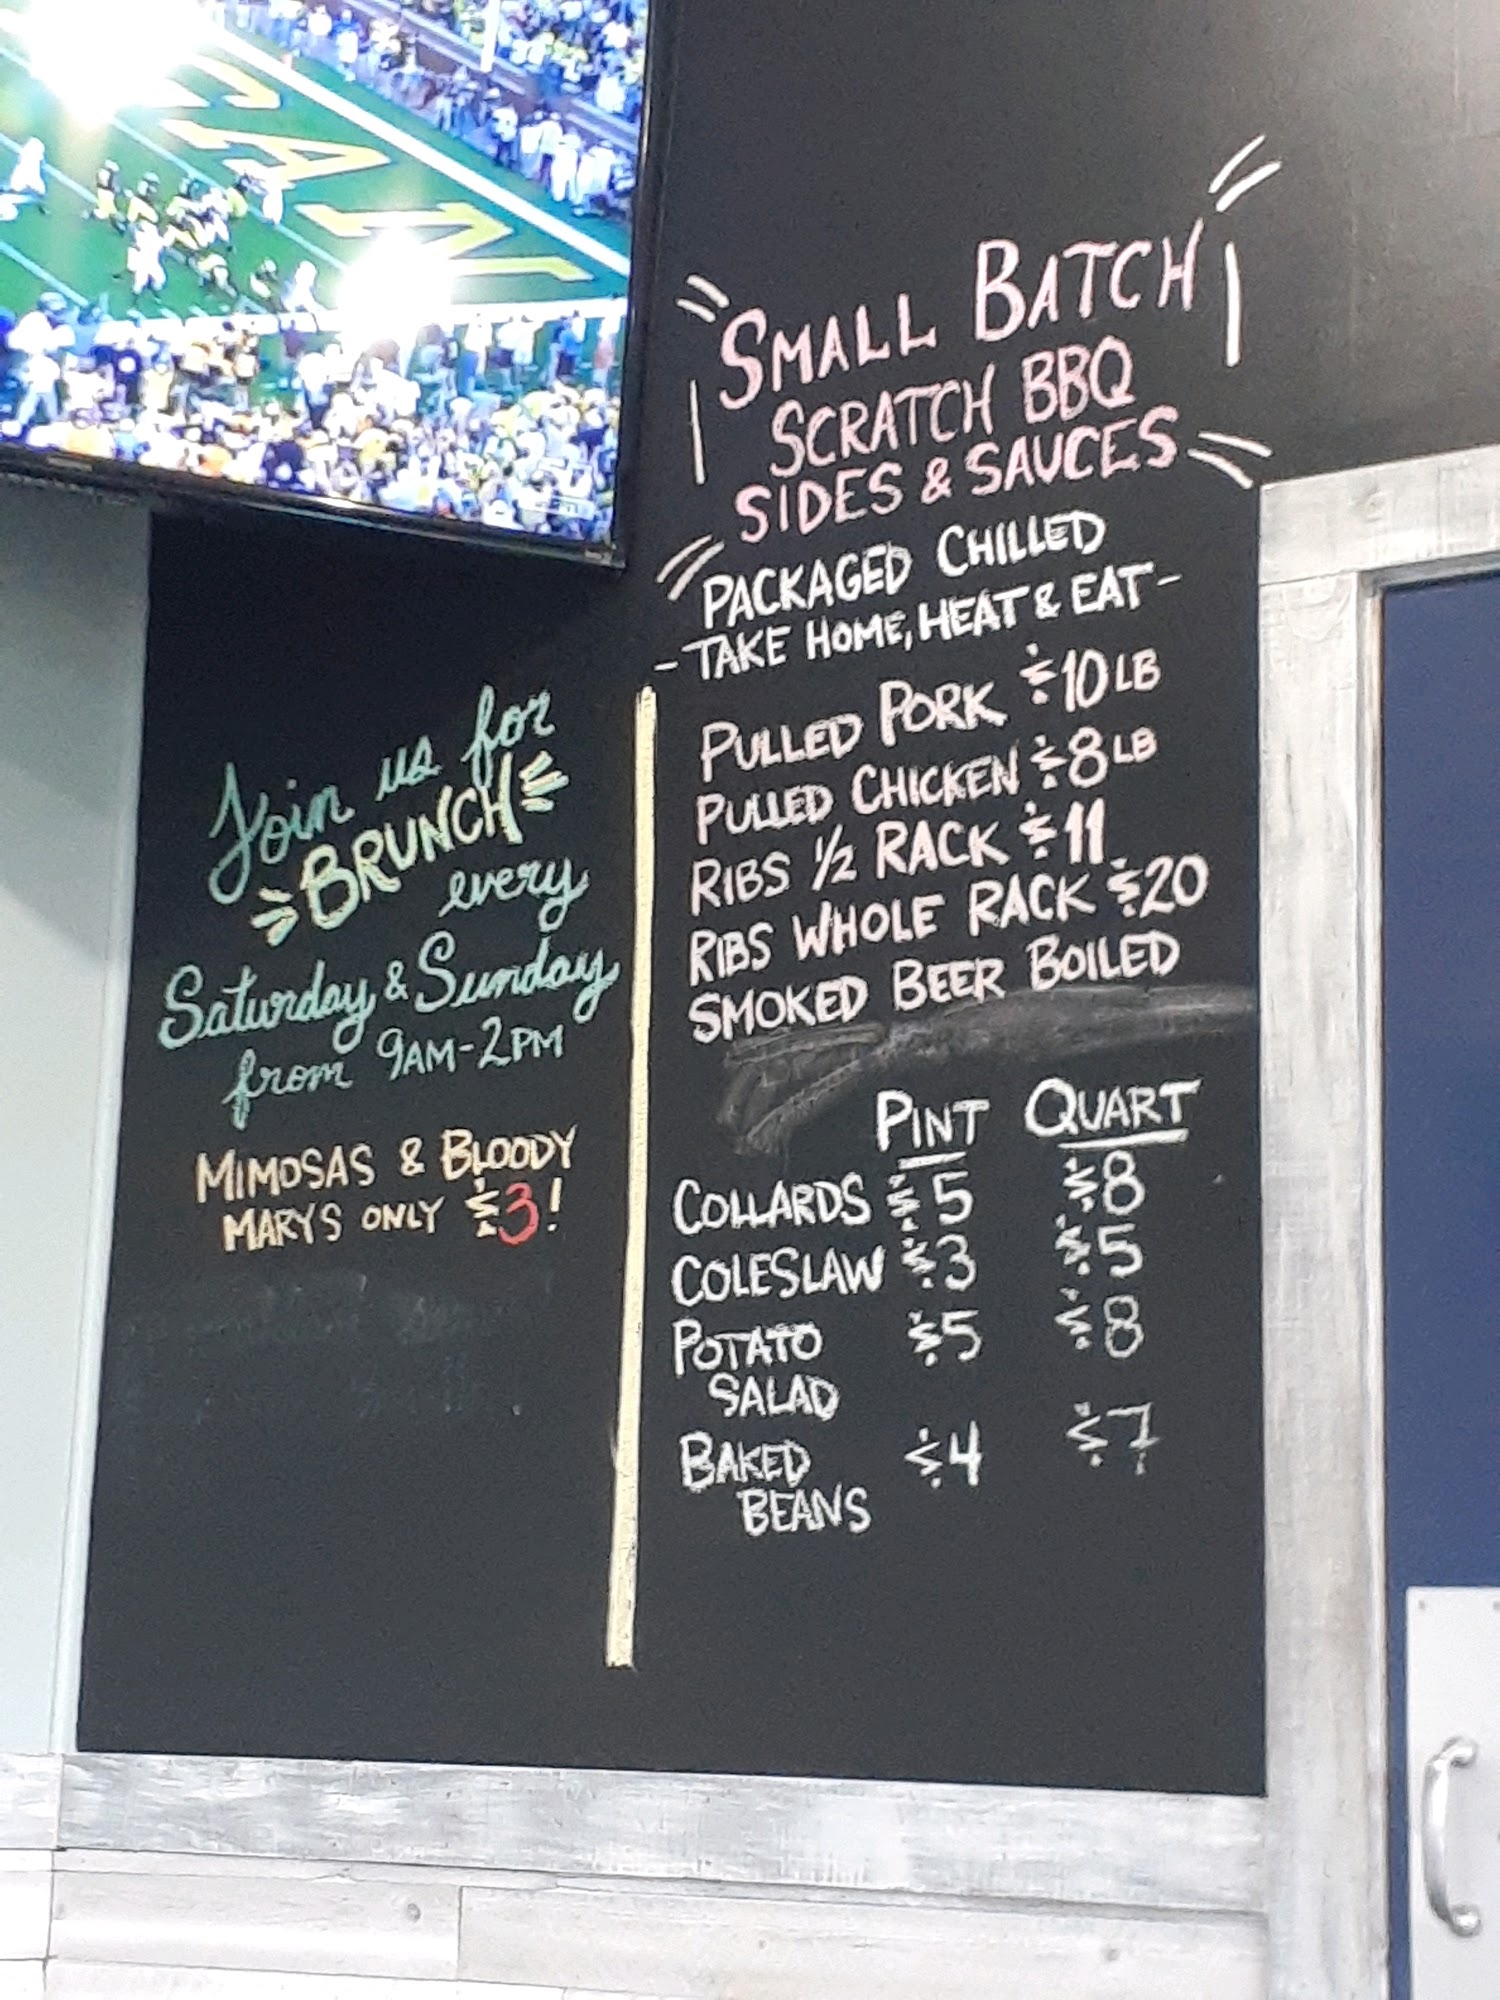 CAN
Join us for
BRUNCH
every
Saturday & Sunday
from 9AM-2PM
MIMOSAS & BLOODY
MARYS ONLY $3!
SMALL BATCH
SCRATCH BBQ
SIDES & SAUCES
PACKAGED CHILLED
- TAKE HOME, HEAT & EAT -
PULLED PORK $10 LB
PULLED CHICKEN $8 LB
RIBS 1/2 RACK $11
RIBS WHOLE RACK $20
SMOKED BEER BOILED
PINT QUART
COLLARDS $5 $8
COLESLAW $3 $5
POTATO $5 $8
SALAD
BAKED $4 $7
BEANS